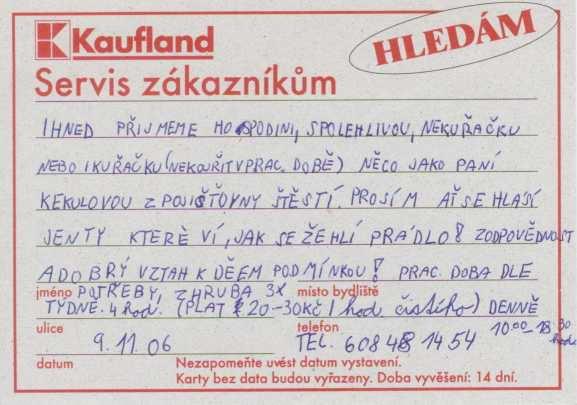 Kaufland
HLEDÁM
Servis zákazníkům
IHNED PŘIJMEME HOSPODINI, SPOLEHLIVOU, NEKUŘAČKU
NEBO I KUŘAČKU (NEKOUŘIT V PRAC. DOBĚ) NĚCO JAKO PANÍ
KEKULOVOU Z POJIŠŤOVNY ŠTĚSTÍ. PROSÍM AŤ SE HLÁSÍ
JEN TY KTERÉ VÍ, JAK SE ŽEHLÍ PRÁDLO! ZODPOVĚDNOST
A DOBRÝ VZTAH K DĚEM PODMÍNKOU! PRAC. DOBA DLE
jméno POTŘEBY, ZHRUBA 3X místo bydliště
TÝDNĚ. 4 hod. (PLAT 20-30KČ / hod. čistého) DENNĚ
ulice telefon 10:00-18:30 hod.
9.11.06 TEL. 608 48 14 54
datum Nezapomeňte uvést datum vystavení.
Karty bez data budou vyřazeny. Doba vyvěšení: 14 dní.